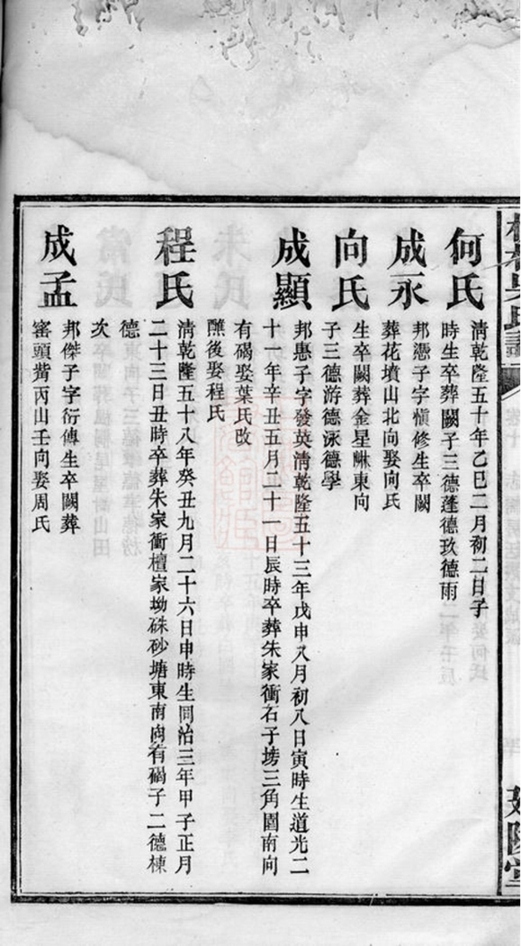 何氏
清乾隆五十年乙巳二月初二日子
時生卒葬闕子三德蓬德玖德雨
成永
邦懑子字愼修生卒闕
葬花墳山北向娶向氏
向氏
生卒闕葬金星牀東向
子三德游德泳德學
成顯
邦惠子字發英清乾隆五十三年戊申八月初八日寅時生道光二
十一年辛丑五月 十一日辰時卒葬朱家衝石子塝三角園南向
有碣娶葉氏改
醮後娶程氏
程氏
清乾隆五十八年癸丑九月二十六日申時生同治三年甲子正月
二十三日丑時卒葬朱家衝檀家坳硃砂塘東南向有碣子二德棟
德
次
成孟
邦傑子字衍傳生卒闕葬
窰頭觜丙山壬向娶周氏